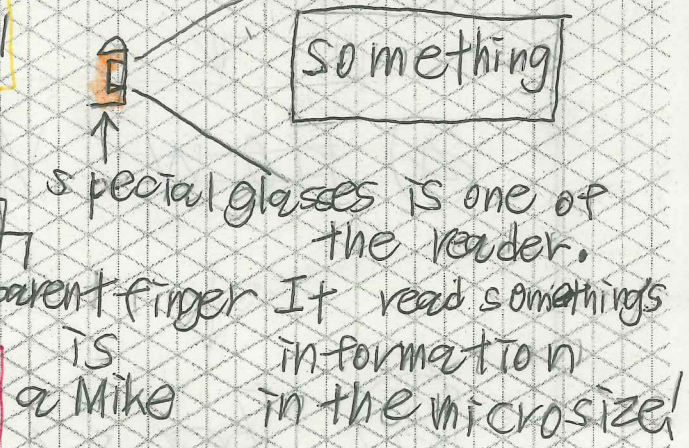 something
special glasses is one of
the reader.
parent finger
is
a Mike
It read something's
information
in the microsize!